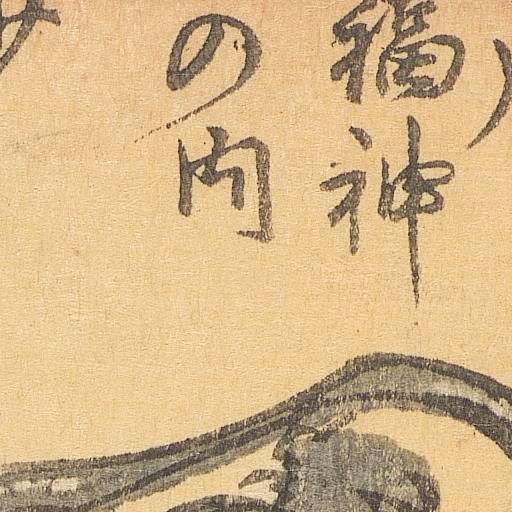 福神
の内